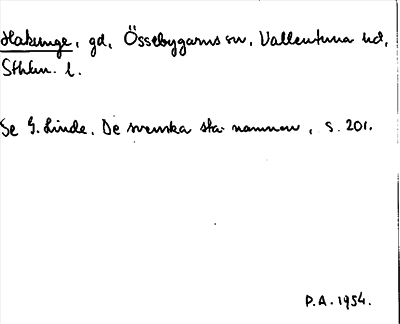 Hakunge, gd, Össebygarns sn, Vallentuna hd,
Sthlm. l.
Se G. Linde. De svenska sta-namnen, s. 201.
P.A. 1954.